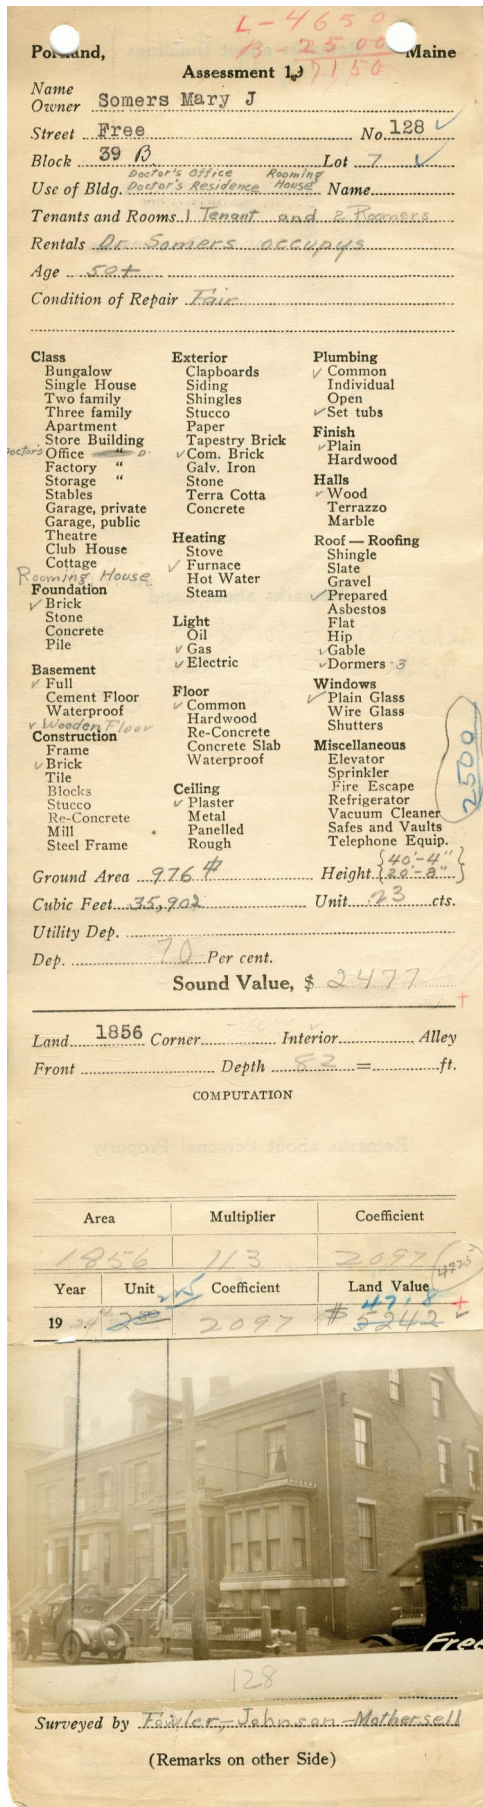 L-4650
B-2500
7150
Portland, Maine
Assessment 19
Name
Owner Somers Mary J
Street Free No. 128 ✓
Block 39 B. Lot 7 ✓
Doctor's Office Rooming
Use of Bldg. Doctor's Residence House Name
Tenants and Rooms 1 Tenant and 2 Roomers
Rentals Dr. Somers occupys
Age 50+
Condition of Repair Fair
Class
Bungalow
Single House
Two family
Three family
Apartment
Store Building
Doctor's Office "
Factory "
Storage "
Stables
Garage, private
Garage, public
Theatre
Club House
Cottage
Rooming House
Foundation
✓ Brick
Stone
Concrete
Pile
Basement
✓ Full
Cement Floor
Waterproof
✓ Wooden Floor
Construction
Frame
✓ Brick
Tile
Blocks
Stucco
Re-Concrete
Mill
Steel Frame
Exterior
Clapboards
Siding
Shingles
Stucco
Paper
Tapestry Brick
✓ Com. Brick
Galv. Iron
Stone
Terra Cotta
Concrete
Heating
Stove
✓ Furnace
Hot Water
Steam
Light
Oil
✓ Gas
✓ Electric
Floor
✓ Common
Hardwood
Re-Concrete
Concrete Slab
Waterproof
Ceiling
✓ Plaster
Metal
Panelled
Rough
Plumbing
✓ Common
Individual
Open
✓ Set tubs
Finish
✓ Plain
Hardwood
Halls
✓ Wood
Terrazzo
Marble
Roof — Roofing
Shingle
Slate
Gravel
✓ Prepared
Asbestos
Flat
Hip
✓ Gable
✓ Dormers - 3
Windows
✓ Plain Glass
Wire Glass
Shutters
Miscellaneous
Elevator
Sprinkler
Fire Escape
Refrigerator
Vacuum Cleaner
Safes and Vaults
Telephone Equip.
2500
Ground Area 976 Height {40'-4" 20'-8"}
Cubic Feet 35,902 Unit .23 cts.
Utility Dep.
Dep. 70 Per cent.
Sound Value, $ 2477
Land 1856 Corner Interior Alley
Front Depth 82 = ft.
COMPUTATION
Area Multiplier Coefficient
1856 113 2097
4725
Year Unit Coefficient Land Value
225 4718
19 24 250 2097 $5242
Free
128
Surveyed by Fowler-Johnson-Mothersell
(Remarks on other Side)